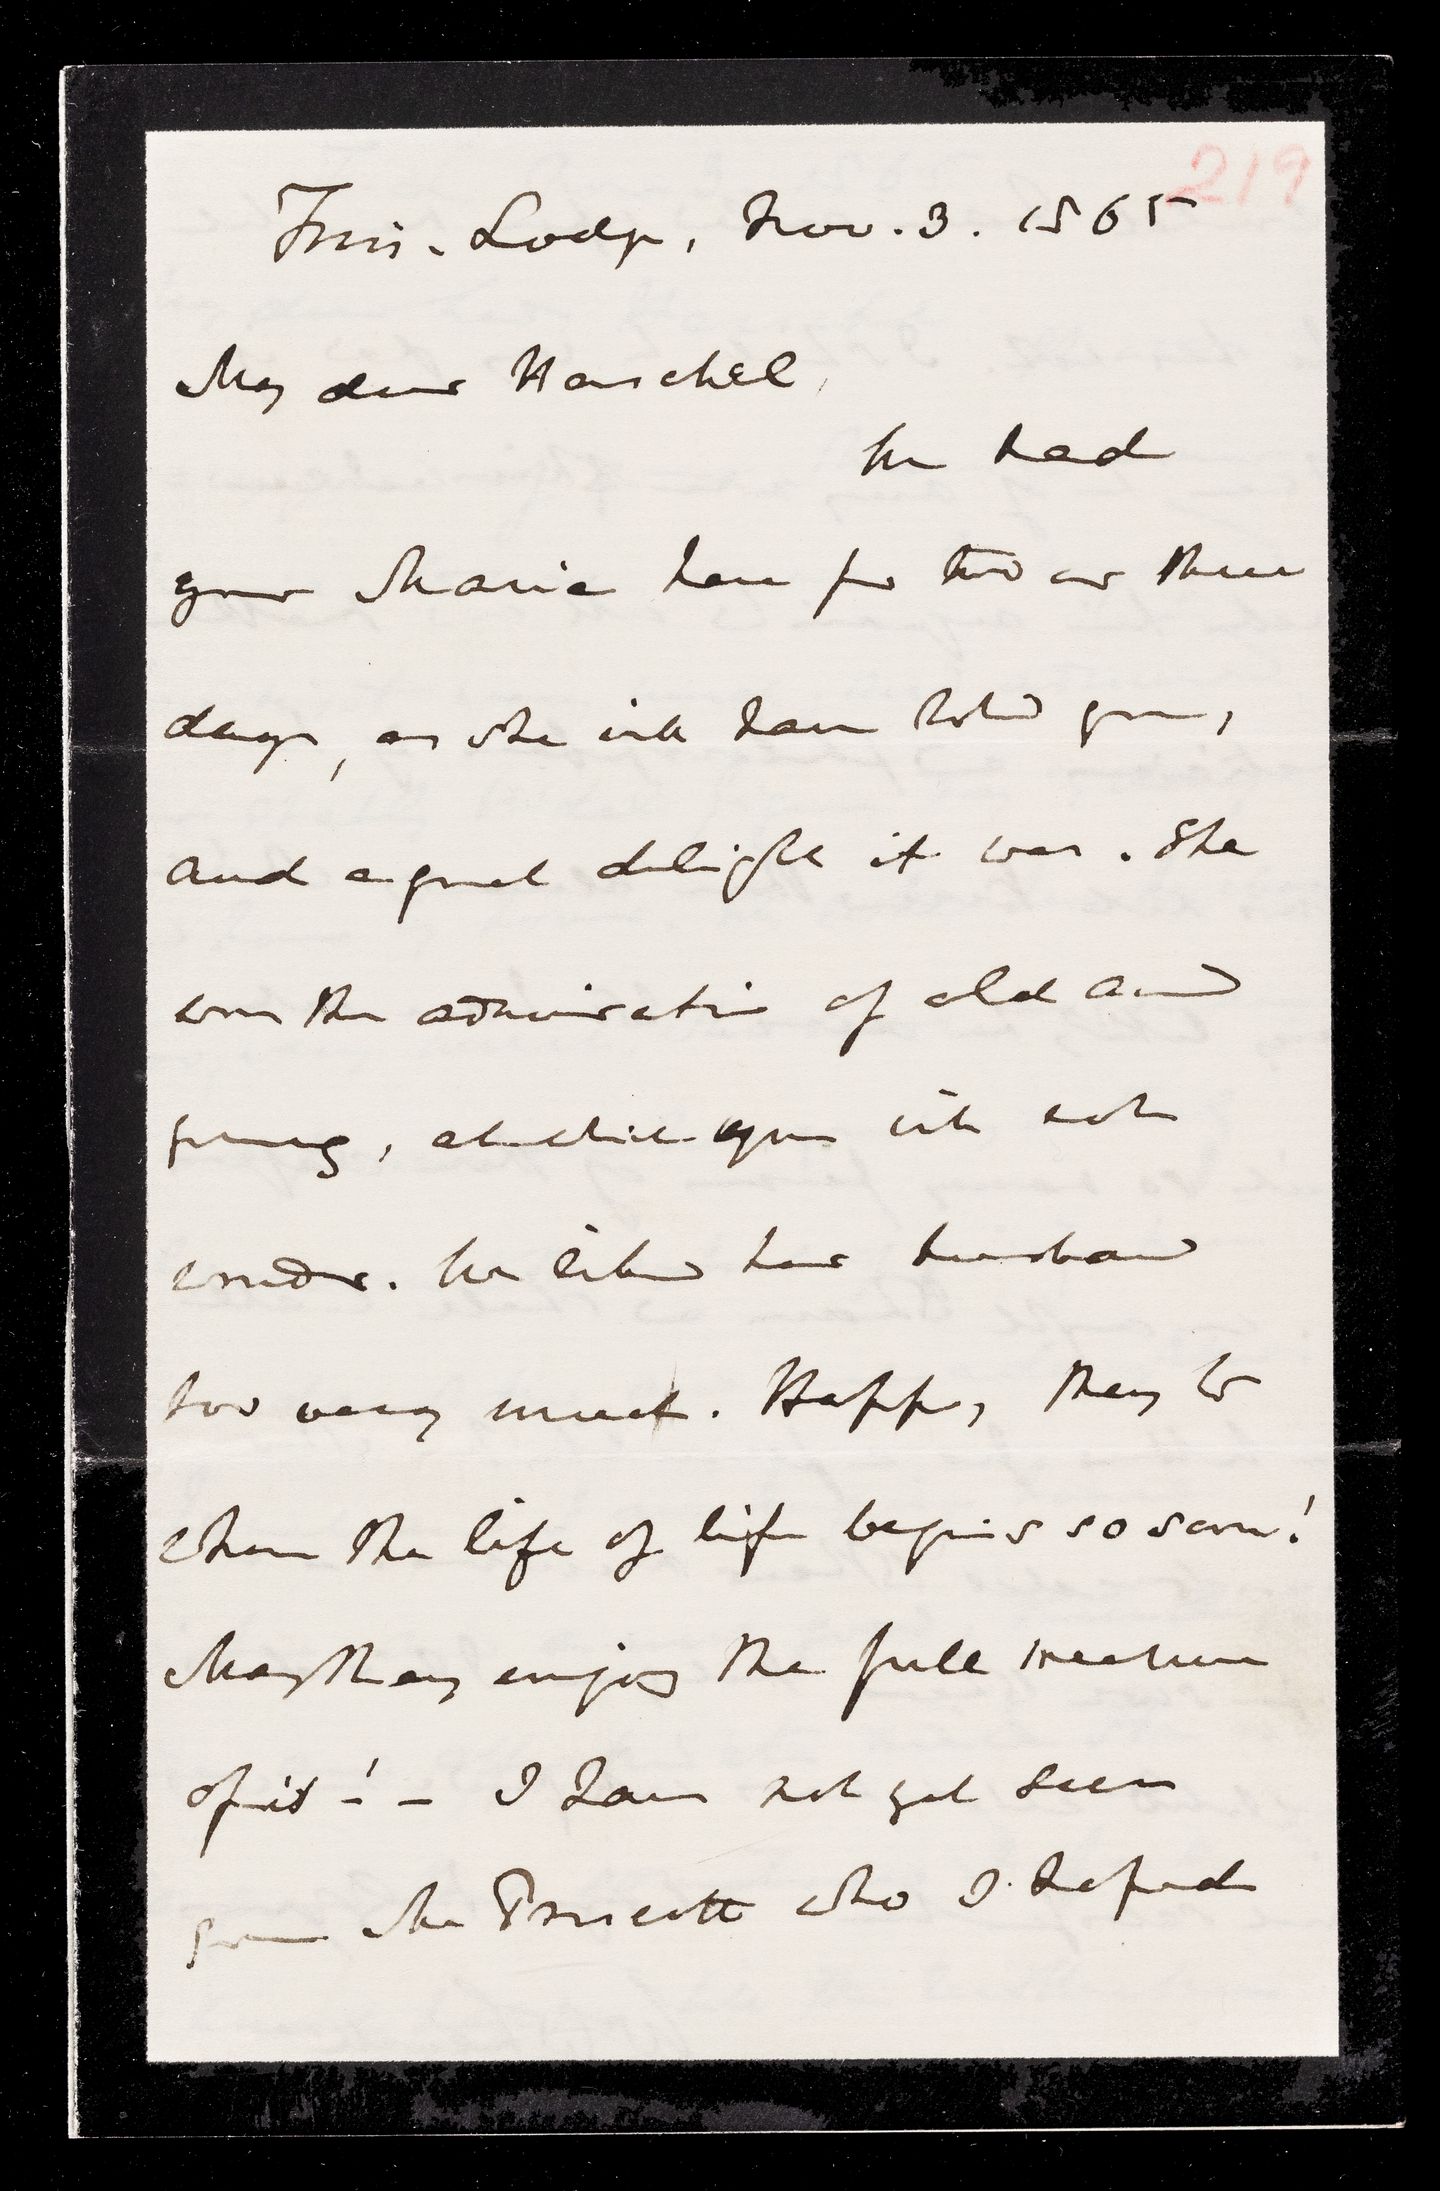 219
Trin. Lodge, Nov. 3. 1865
My dear Herschel,
We had
your Maria here for two or three
days, as she will have told you,
and a great delight it was. She
won the admiration of old and
young, at which you will not
wonder. We liked her husband
too very much. Happy, they to
whom the life of life begins so soon!
May they enjoy the full measure
of it! – I have not yet seen
your Mr Prescott who I hoped